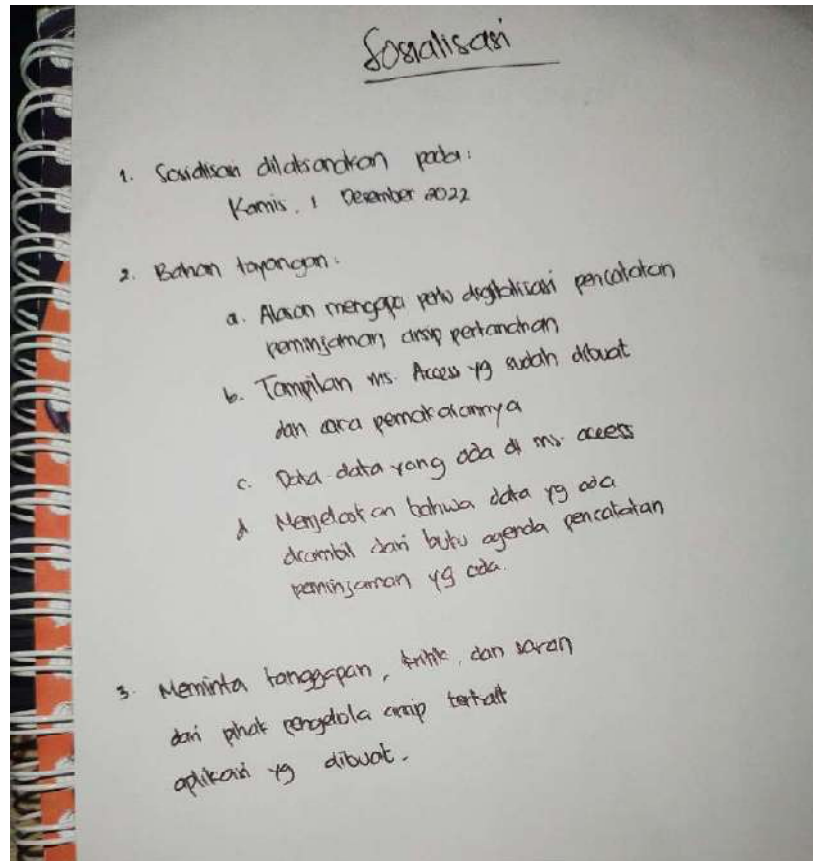 Sosialisasi
1. Sosialisasi dilaksanakan pada:
Kamis, 1 Desember 2022
2. Bahan tayangan:
a. Alasan mengapa perlu digitalisasi pencatatan
peminjaman arsip pertanahan
b. Tampilan ms. Access yg sudah dibuat
dan cara pemakaiannya
c. Data-data yang ada di ms. access
d Menjelaskan bahwa data yg ada
diambil dari buku agenda pencatatan
peminjaman yg ada.
3. Meminta tanggapan, kritik, dan saran
dari pihak pengelola arsip terkait
aplikasi yg dibuat.